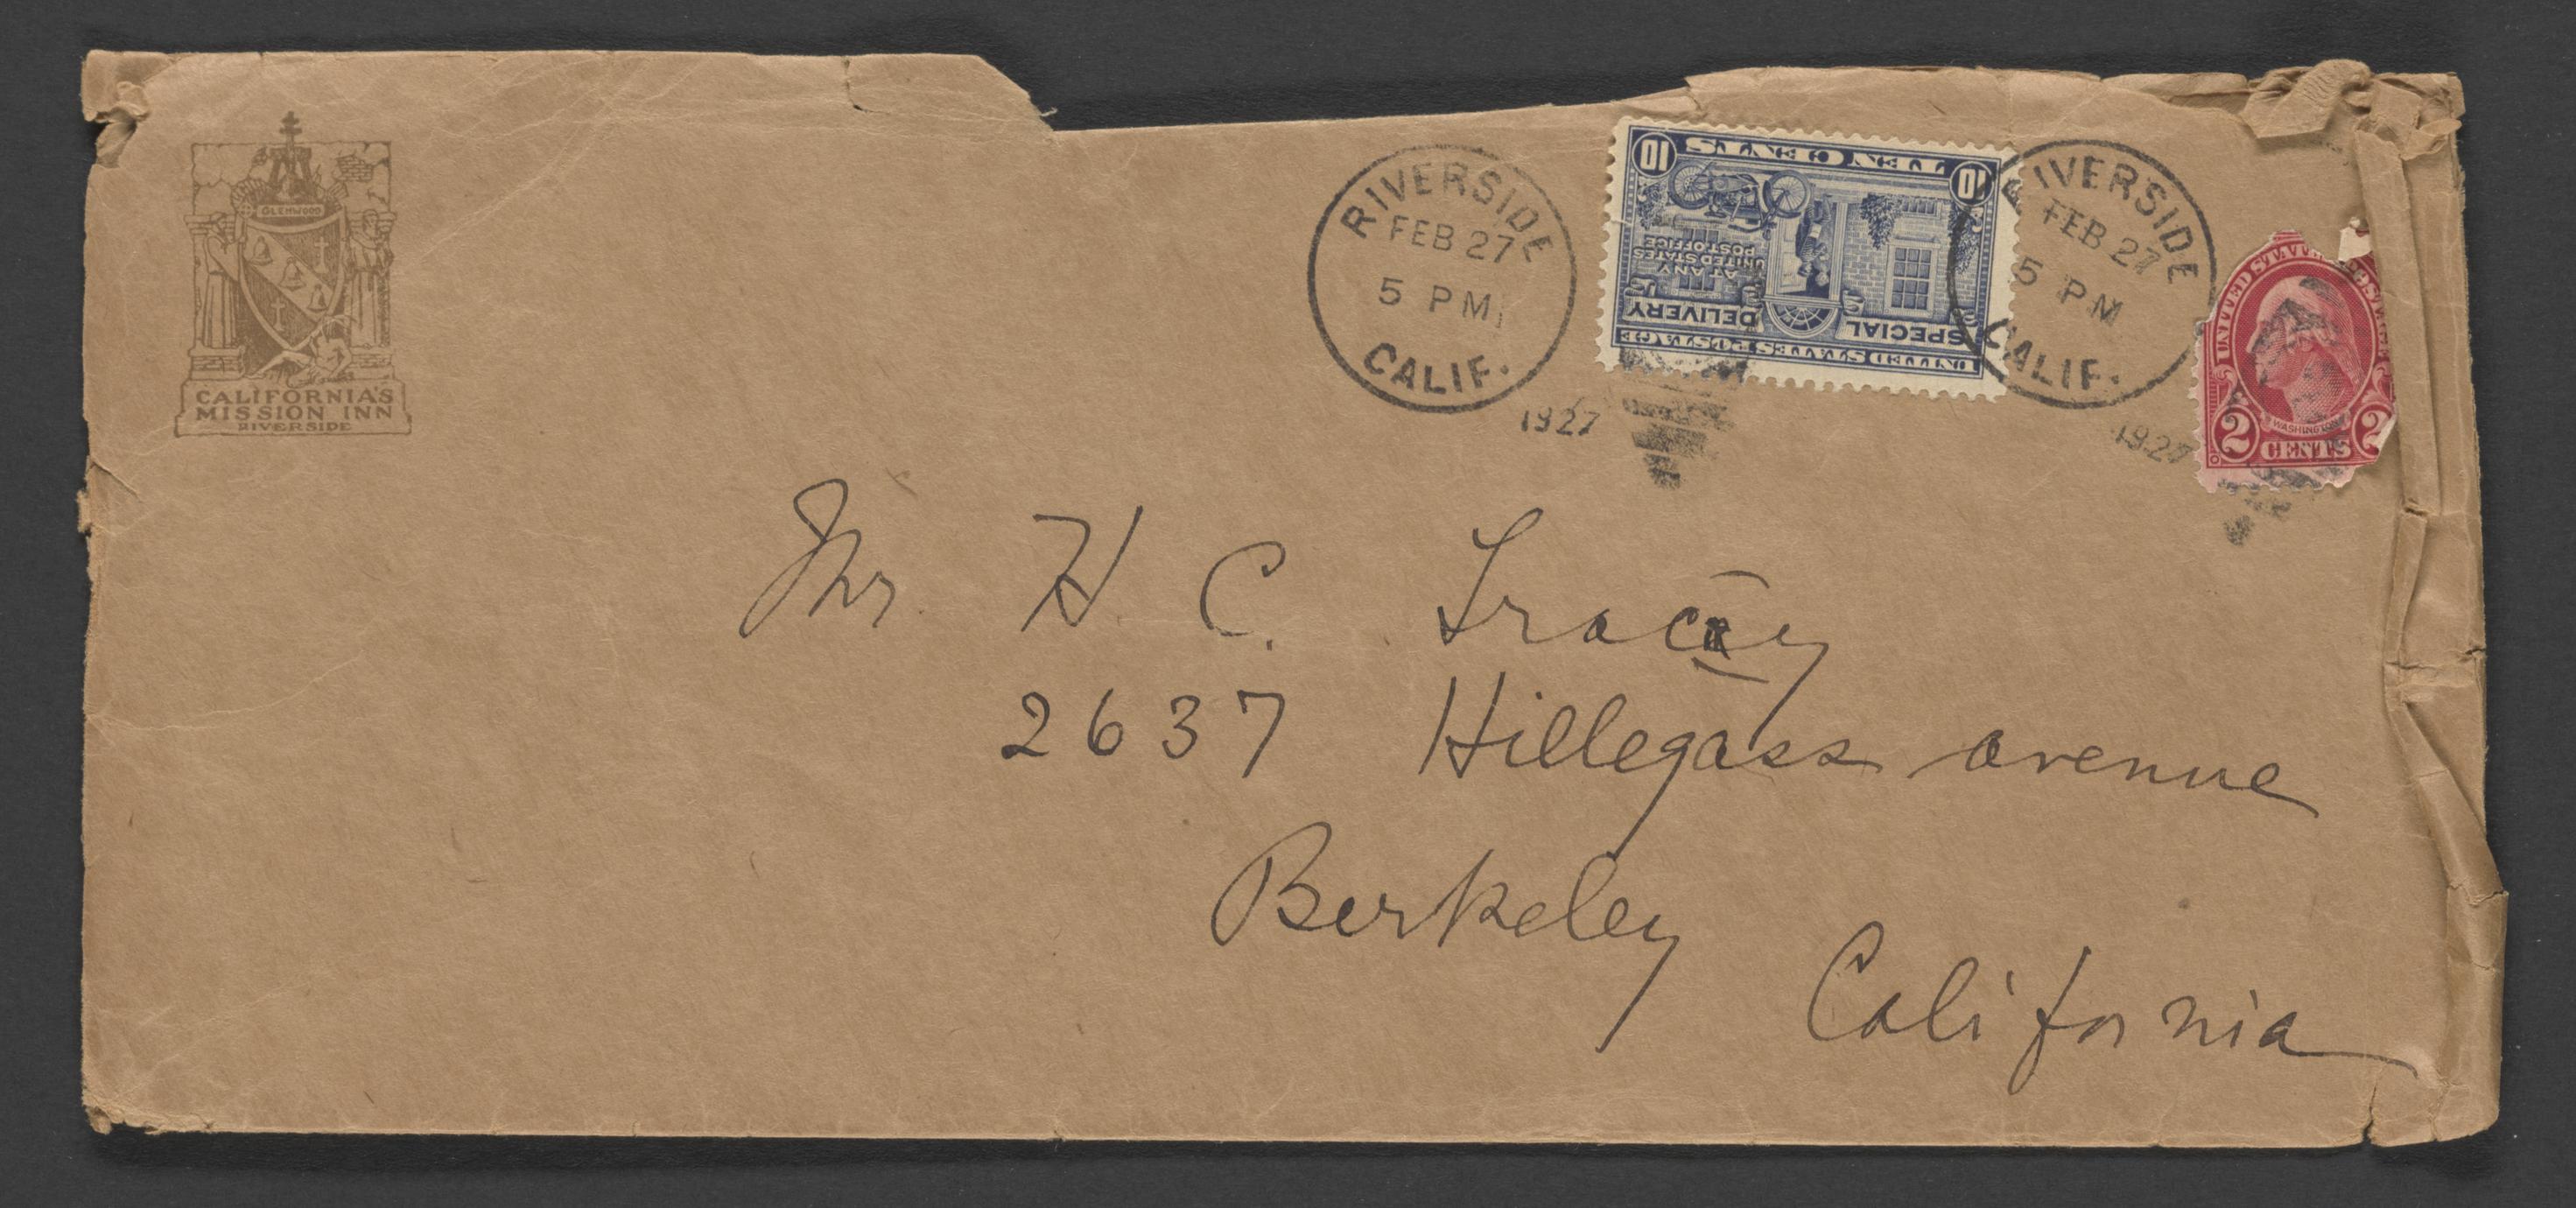 GLENWOOD
CALIFORNIA'S
MISSION INN
RIVERSIDE
RIVERSIDE
FEB 27
5 PM
CALIF.
1927
UNITED STATES POSTAGE
SPECIAL DELIVERY
AT ANY
UNITED STATES
POST OFFICE
10 TEN CENTS 10
RIVERSIDE
FEB 27
5 PM
CALIF.
1927
UNITED STATES POSTAGE
WASHINGTON
2 CENTS 2
Mr H C. Tracy
2637 Hillegass avenue
Berkeley
California